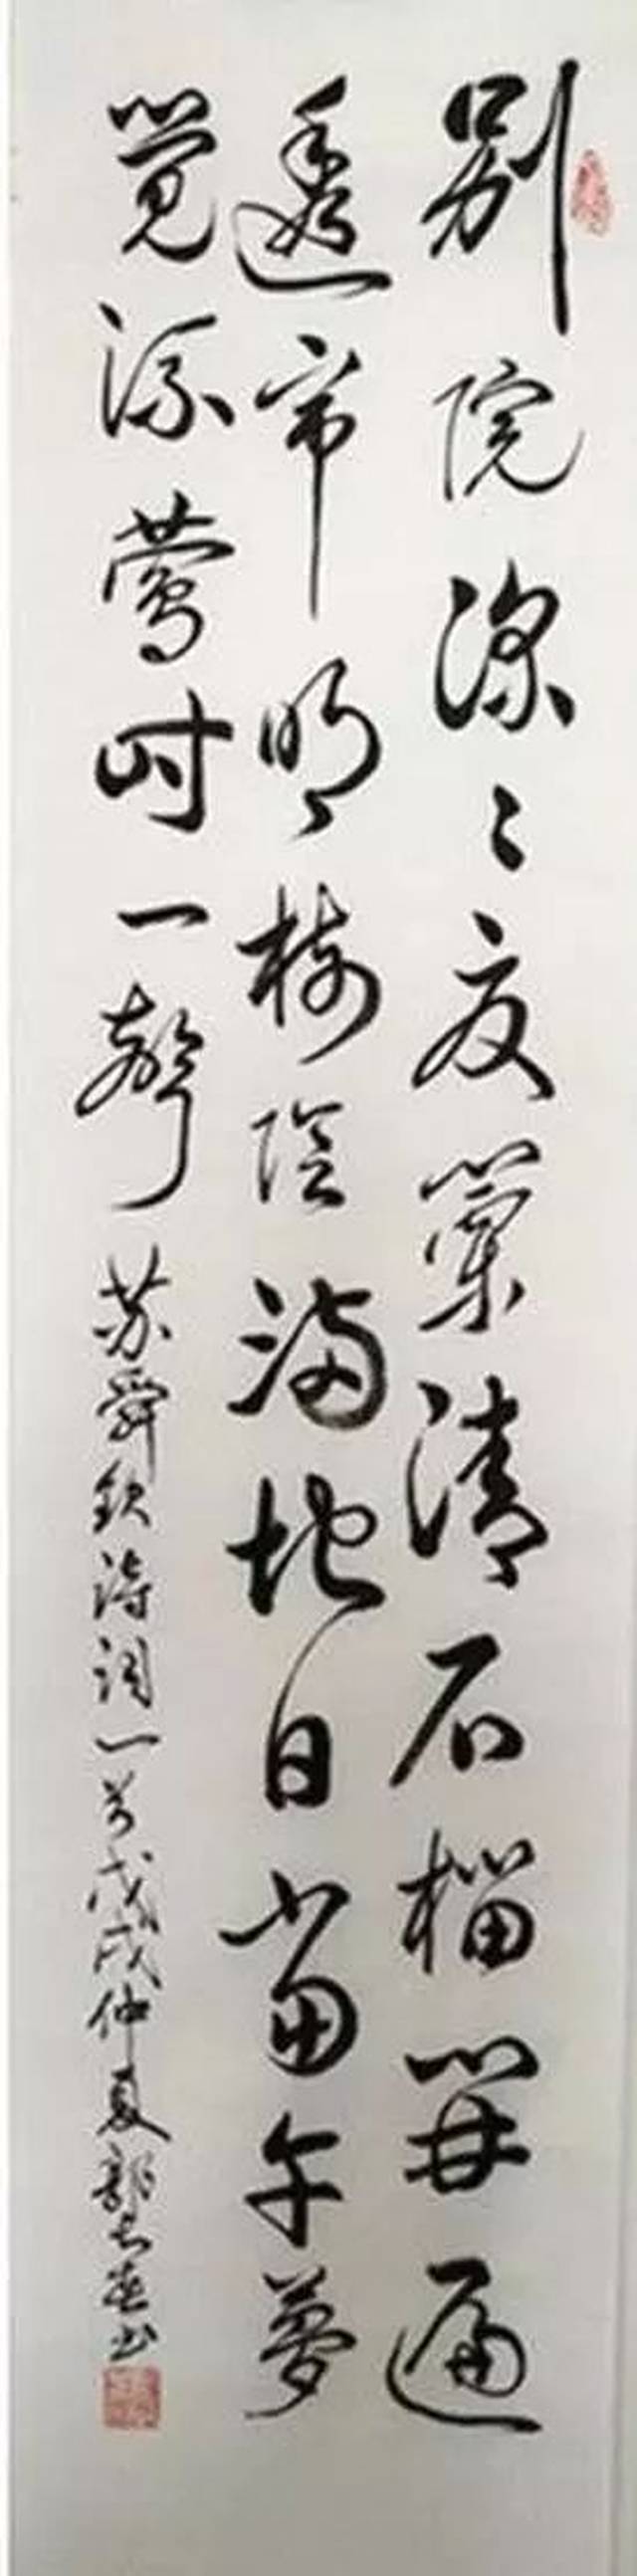 别院深々夏簟清石榴開遍
透帘明樹陰满地日當午夢
覺流莺时一聲 苏舜钦诗词一首戊戌仲夏郭春书